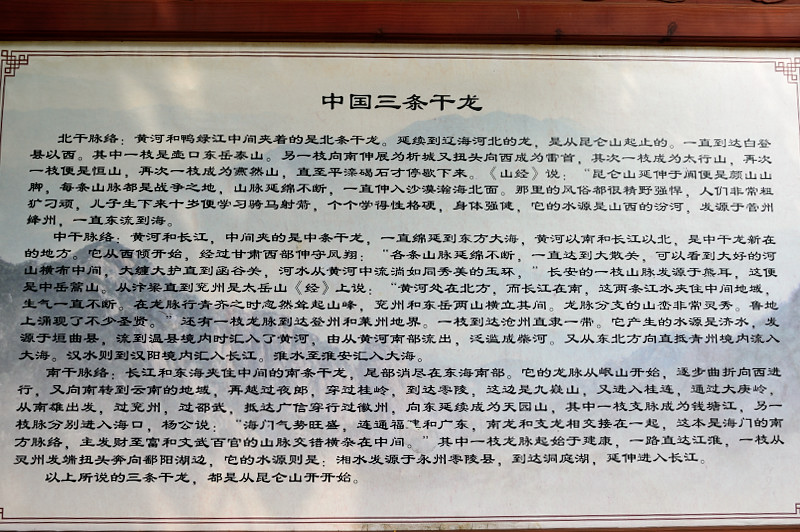 中国三条干龙
北干脉络：黄河和鸭绿江中间夹着的是北条干龙。延续到辽海河北的龙，是从昆仑山起止的。一直到达白登
县以西。其中一枝是壶口东岳泰山。另一枝向南伸展为析城又扭头向西成为雷首，其次一枝成为太行山，再次
一枝便是恒山，再次一枝成为燕然山，直至平滦碣石才停歇下来。《山经》说：“昆仑山延伸于阗便是颜山山
脚，每条山脉都是战争之地，山脉延绵不断，一直伸入沙漠瀚海北面。那里的风俗都很精野强悍，人们非常粗
犷刁顽，儿子生下来十岁便学习骑马射箭，个个学得性格硬，身体强健，它的水源是山西的汾河，发源于晋州
绛州，一直东流到海。
中干脉络：黄河和长江，中间夹的是中条干龙，一直绵延到东方大海，黄河以南和长江以北，是中干龙新在
的地方。它从西倾开始，经过甘肃西部伸守凤翔：“各条山脉延绵不断，一直达到大散关，可以看到大好的河
山横布中间，大缠大护直到函谷关，河水从黄河中流淌如同秀美的玉环，”长安的一枝山脉发源于熊耳，这便
是中岳嵩山，从汴梁直到兖州是太岳山《经》上说：“黄河处在北方，而长江在南，这两条江水夹住中间地域，
生气一直不断。在龙脉行青齐之时忽然耸起山峰，兖州和东岳两山横立其间。龙脉分支的山峦非常灵秀。鲁地
上涌现了不少圣贤。”还有一枝龙脉到达登州和莱州地界。一枝到达沧州直隶一带。它产生的水源是济水，发
源于垣曲县，流到温县境内时汇入了黄河，由从黄河南部流出，泛滥成柴河。又从东北方向直抵青州境内流入
大海。汉水则到汉阳境内汇入长江。淮水至淮安汇入大海。
南干脉络：长江和东海夹住中间的南条干龙，尾部消尽在东海南部。它的龙脉从岷山开始，逐步曲折向西进
行，又向南转到云南的地域，再越过夜郎，穿过桂岭，到达零陵，这边是九嶷山，又进入桂连，通过大庾岭，
从南雄出发，过兖州，过邵武，抵达广信穿行过徽州，向东延续成为天园山，其中一枝支脉成为钱塘江，另一
枝脉分别进入海口，杨公说：“海门气势旺盛，连通福建和广东，南龙和支龙相交接在一起，这本是海门的南
方脉络，主发财至富和文武百官的山脉交错横杂在中间。”其中一枝龙脉起始于建康，一路直达江淮，一枝从
灵州发端扭头奔向鄱阳湖边，它的水源则是：湘水发源于永州零陵县，到达洞庭湖，延伸进入长江。
以上所说的三条干龙，都是从昆仑山开开始。